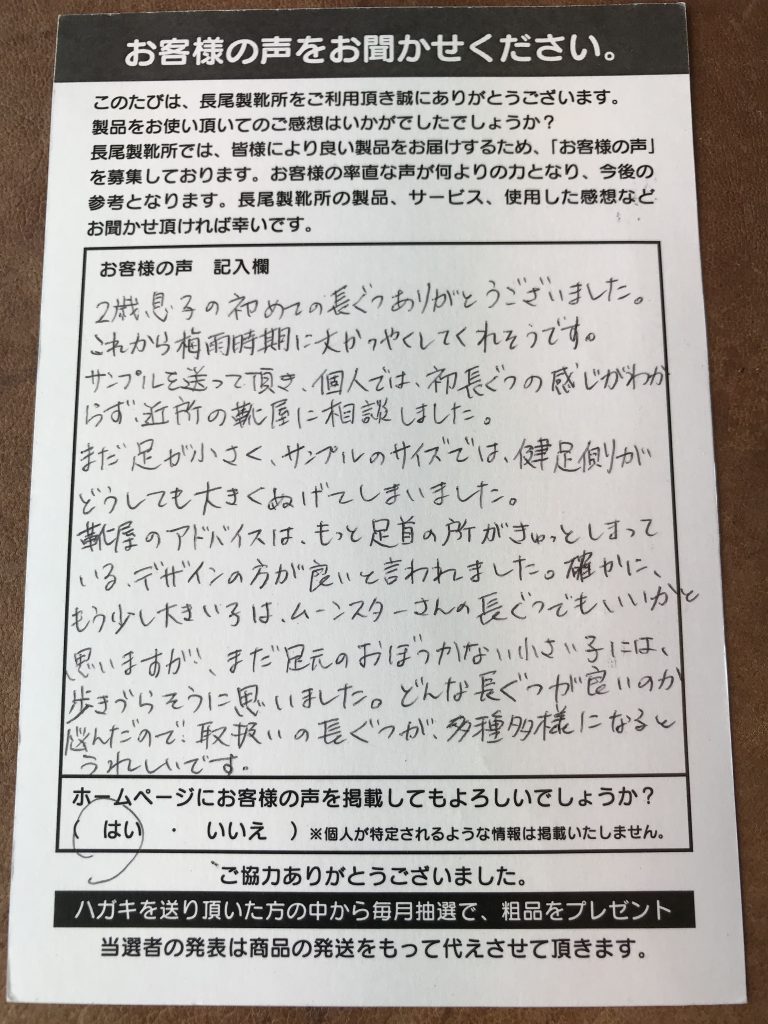 お客様の声をお聞かせください。
このたびは、長尾製靴所をご利用頂き誠にありがとうございます。
製品をお使い頂いてのご感想はいかがでしたでしょうか？
長尾製靴所では、皆様により良い製品をお届けするため、「お客様の声」
を募集しております。お客様の率直な声が何よりの力となり、今後の
参考となります。長尾製靴所の製品、サービス、使用した感想など
お聞かせ頂ければ幸いです。
お客様の声　記入欄
2歳息子の初めての長ぐつありがとうございました。
これから梅雨時期に大かつやくしてくれそうです。
サンプルを送って頂き、個人では、初長ぐつの感じがわか
らず、近所の靴屋に相談しました。
まだ足が小さく、サンプルのサイズでは、健足側が
どうしても大きくぬげてしまいました。
靴屋のアドバイスは、もっと足首の所がきゅっとしまって
いる、デザインの方が良いと言われました。確かに、
もう少し大きい子は、ムーンスターさんの長ぐつでもいいかと
思いますが、まだ足元のおぼつかない小さい子には、
歩きづらそうに思いました。どんな長ぐつが良いのか
悩んだので、取扱いの長ぐつが、多種多様になると
うれしいです。
ホームページにお客様の声を掲載してもよろしいでしょうか？
（　はい　・　いいえ　）※個人が特定されるような情報は掲載いたしません。
ご協力ありがとうございました。
ハガキを送り頂いた方の中から毎月抽選で、粗品をプレゼント
当選者の発表は商品の発送をもって代えさせて頂きます。